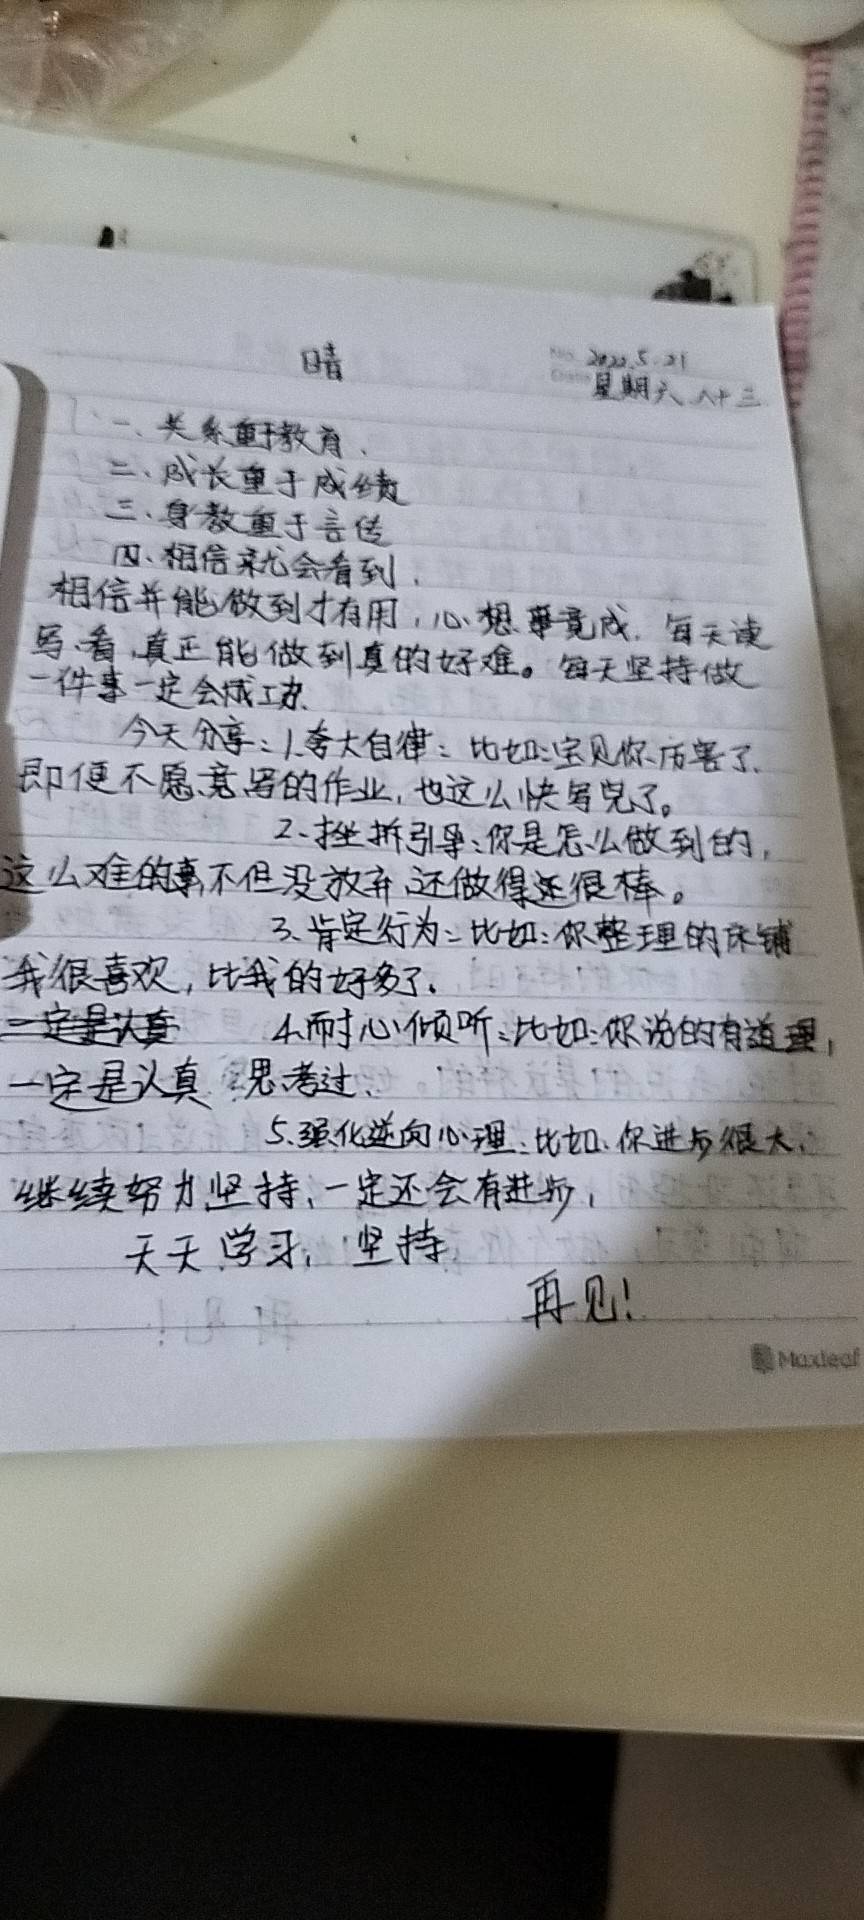 晴
No. 2022.5.21
Date 星期六 八十三
一、关系重于教育、
二、成长重于成绩
三、身教重于言传
四、相信就会看到,
相信并能做到才有用,心想事竟成. 每天读
写、看,真正能做到真的好难。每天坚持做
一件事一定会成功.
今天分享:1.夸大自律:比如:宝贝你厉害了.
即便不愿意写的作业,也这么快写完了。
2.挫折引导:你是怎么做到的,
这么难的事不但没放弃,还做得还很棒。
3.肯定行为:比如:你整理的床铺
我很喜欢,比我的好多了.
一定是认真 4.耐心倾听:比如:你说的有道理,
一定是认真 思考过.
5.强化逆向心理:比如.你进步很大,
继续努力坚持,一定还会有进步,
天天学习,坚持
再见!
Maxleaf